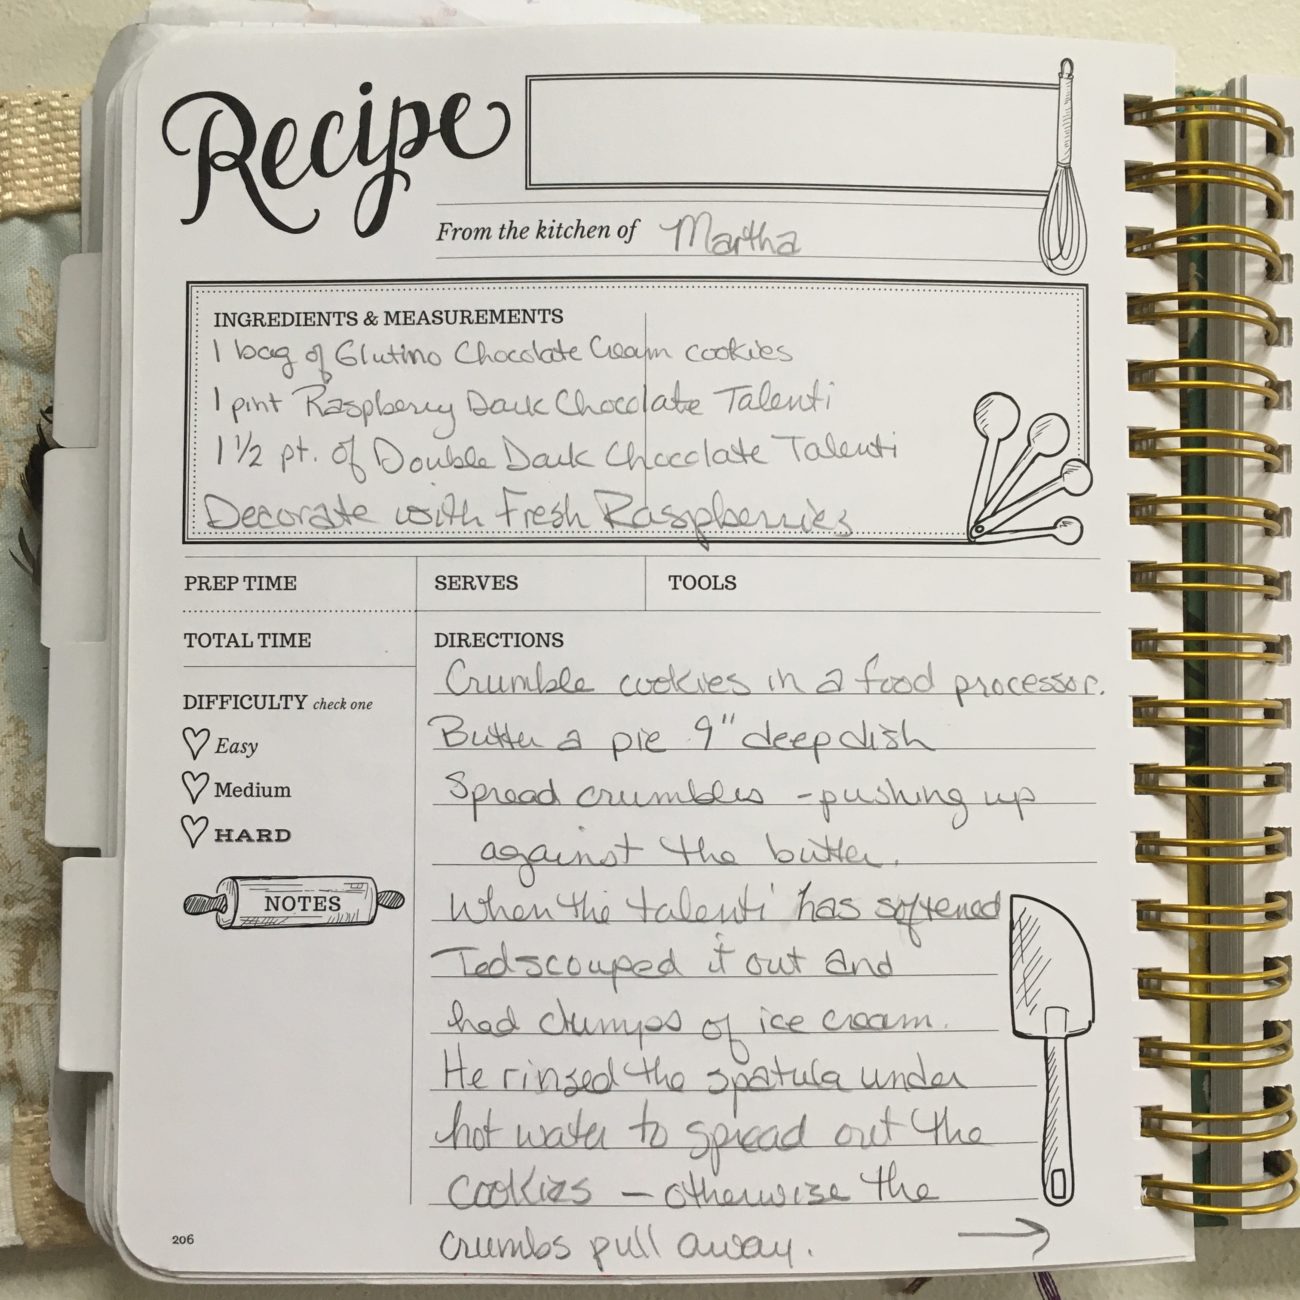 Recipe
From the kitchen of Martha
INGREDIENTS & MEASUREMENTS
1 bag of Glutino Chocolate Cream cookies
1 pint Raspberry Dark Chocolate Talenti
1 1/2 pt. of Double Dark Chocolate Talenti
Decorate with Fresh Raspberries
PREP TIME
SERVES
TOOLS
TOTAL TIME
DIFFICULTY check one
Easy
Medium
HARD
NOTES
DIRECTIONS
Crumble cookies in a food processor.
Butter a pie 9" deep dish
Spread crumbles - pushing up
against the butter.
When the talenti has softened
Ted scouped it out and
had clumps of ice cream.
He rinsed the spatula under
hot water to spread out the
cookies - otherwise the
crumbs pull away. →
206